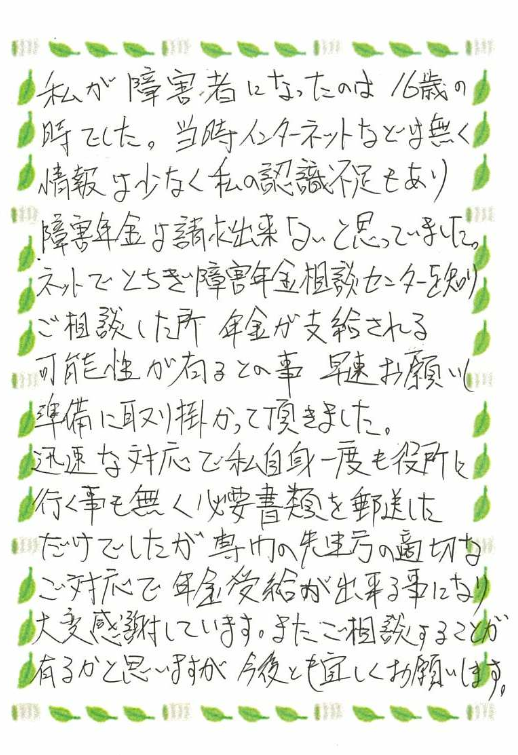 私が障害者になったのは16歳の
時でした。当時インターネットなどは無く
情報は少なく私の認識不足もあり
障害年金は請求出来ないと思っていました。
ネットでとちぎ障害年金相談センターを知り
ご相談した所 年金が支給される
可能性が有るとの事 早速お願いし
準備に取り掛かって頂きました。
迅速な対応で私自身一度も役所に
行く事も無く必要書類を郵送した
だけでしたが専門の先生方の適切な
ご対応で年金受給が出来る事になり
大変感謝しています。またご相談することが
有るかと思いますが今後とも宜しくお願いします。